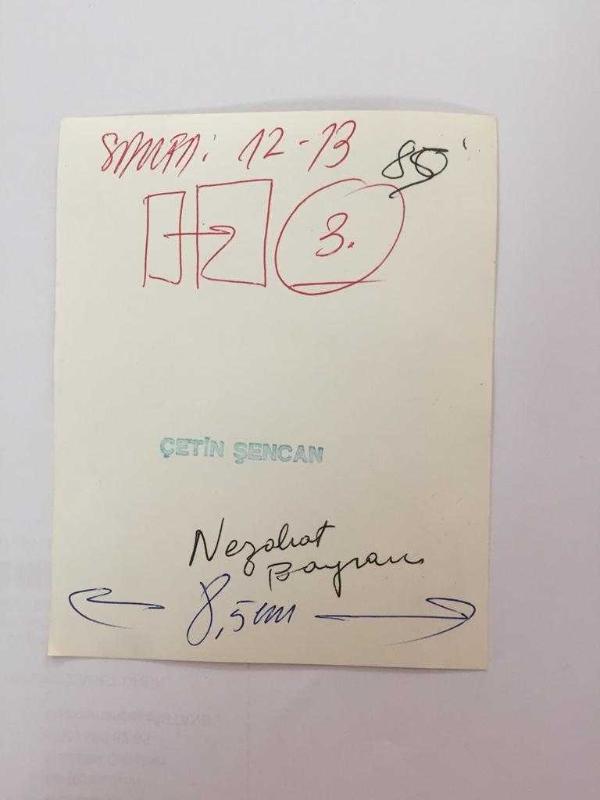 SAYFA: 12-13
3.
ÇETİN ŞENCAN
Nezahat
Bayram
8,5 cm